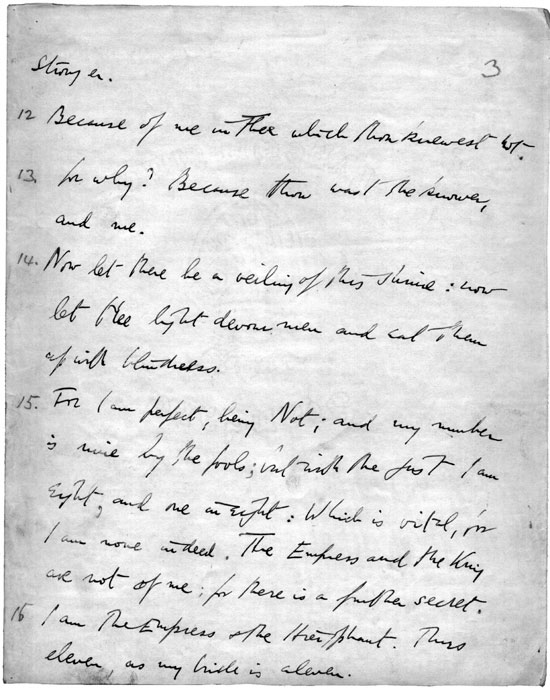 3
stronger.
12 Because of me in Thee which thou knewest not.
13. for why? Because thou wast the knower,
and me.
14. Now let there be a veiling of this shrine: now
let the light devour men and eat them
up with blindness.
15. For I am perfect, being Not; and my number
is nine by the fools; but with the just I am
eight, and one in eight: Which is vital, for
I am none indeed. The Empress and the King
are not of me; for there is a further secret.
16 I am the Empress & the Hierophant. Thus
eleven, as my bride is eleven.